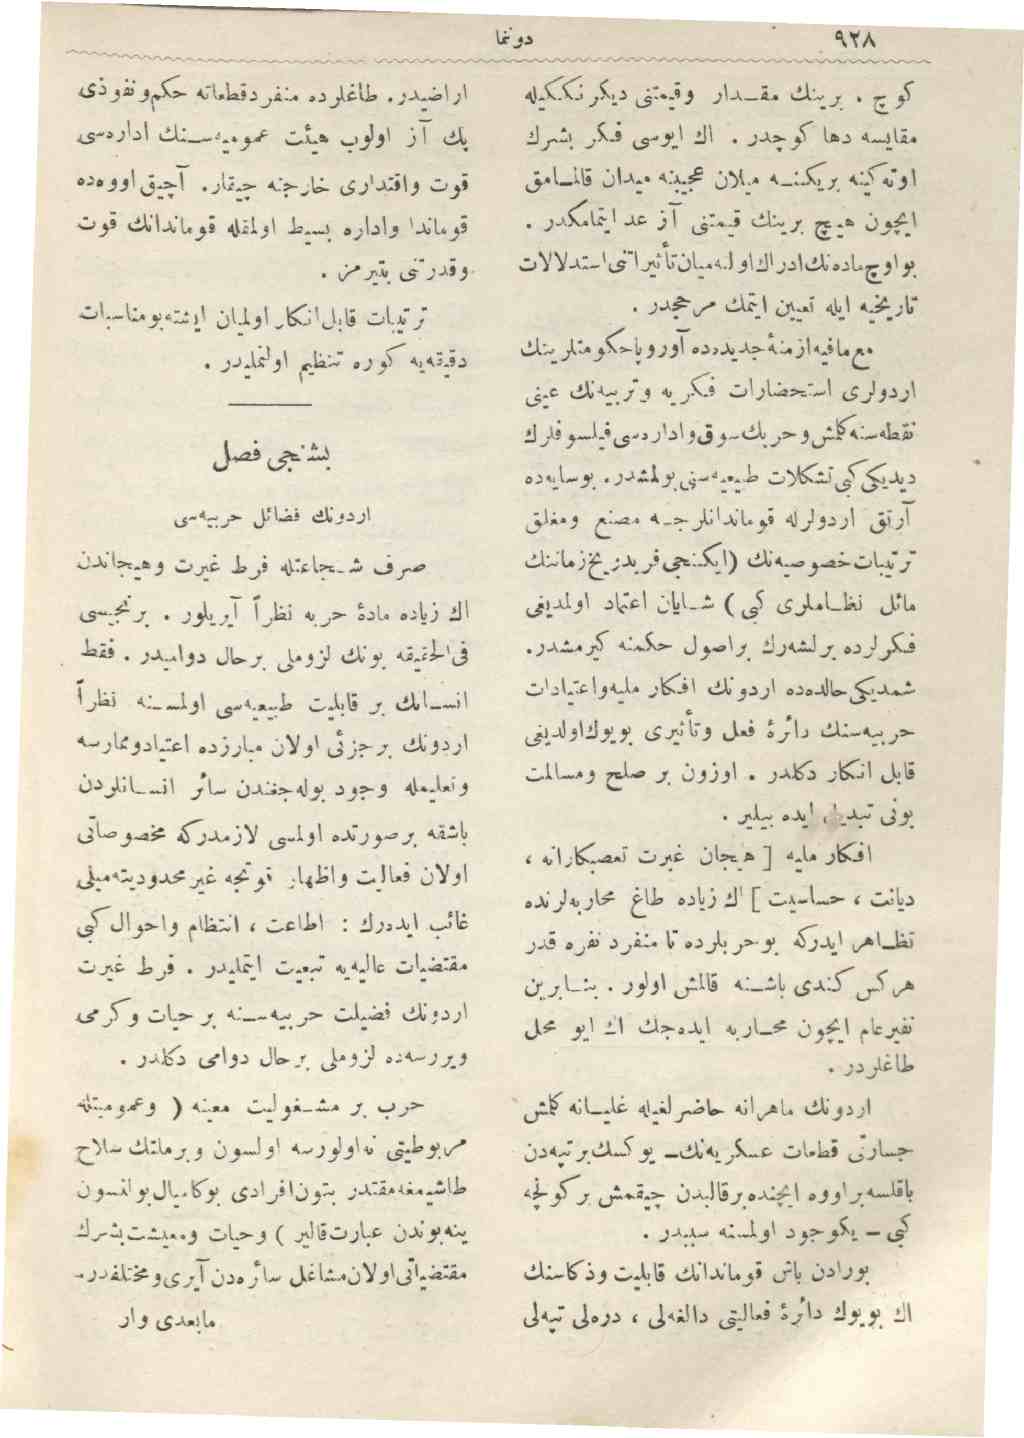 ٩٢٨
دونما
كوچ . برينك مقدار وقيمتنى ديكرنككيله
مقايسه دها كوچدر . اك ايوسى فكر بشرك
اوته كينه بريكسنه ميلان عجيبنه ميدان قالمامق
ايچون هيچ برينك قيمتنى آز عد ايتمامكدر .
بواوچ ماده نك ادراك اولنه ميان تأثيراتنى استدلالات
تاريخيه ايله تعيين ايتمك مرجحدر .
مع مافيه ازمنهٔ جديده ده آوروپا حكومتلرينك
اردولرى استحضارات فكريه وتربيه نك عينى
نقطه سنه كلمش وحربك سوق واداره سى فيلسوفلرك
ديديكى كبى تشكلات طبيعيه سنى بولمشدر . بوسايه ده
آرتق اردولرله قوماندانلرجه مصنع ومغلق
ترتيبات خصوصيه نك (ايكنجى فريدريخ زماننك
مائل نظاملرى كبى) شايان اعتماد اولمديغى
فكرلرده برلشه رك براصول حكمنه كيرمشدر.
شمديكى حالده ده اردونك افكار مليه واعتيادات
حربيه سنك دائرهٔ فعل وتأثيرى بويوك اولديغى
قابل انكار دكلدر . اوزون بر صلح ومسالمت
بونى تبديل ايده بيلير .
افكار مليه [ هيجان غيرت تعصبكارانه ،
ديانت ، حساسيت ] اك زياده طاغ محاربه لرنده
تظاهر ايدركه بوحربلرده تا منفرد نفره قدر
هركس كندى باشنه قالمش اولور . بنابرين
نفيرعام ايچون محاربه ايده جك اك ايو محل
طاغلردر .
اردونك ماهرانه حاضرلغيله غليانه كلمش
جسارتى قطعات عسكريه نك ــ يوكسك برتپه دن
باقلسه براووه ايچنده برقالبدن چيقمش بركولچه
كبى ــ يكوجود اولمسنه سببدر .
بورادن باش قوماندانك قابليت وذكاسنك
اك بويوك دائرهٔ فعاليتى دالغه لى ، دره لى تپه لى
اراضيدر. طاغلرده منفردقطعاته حكم ونفوذى
پك آز اولوب هيئت عموميه سنك اداره سى
قوت واقتدارى خارجنه چيقار. آچيق اووه ده
قوماندا واداره بسيط اولمقله قوماندانك قوت
وقدرتنى بتيرمز .
ترتيبات قابل انكار اولميان ايشته بومناسبات
دقيقه يه كوره تنظيم اولنمليدر .
بشنجى فصل
اردونك فضائل حربيه سى
صرف شجاعتله فرط غيرت وهيجاندن
اك زياده مادهٔ حربه نظراً آيريلور . برنجيسى
فى الحقيقه بونك لزوملى برحال دواميدر . فقط
انسانك بر قابليت طبيعيه سى اولمسنه نظراً
اردونك برجزئى اولان مبارزده اعتيادوممارسه
وتعليمله وجود بوله جغندن سائر انسانلردن
باشقه برصورتده اولمسى لازمدركه مخصوصاتى
اولان فعاليت واظهار قوتجه غيرمحدوديته ميلى
غائب ايده رك : اطاعت ، انتظام واحوال كبى
مقتضيات عاليه يه تبعيت ايتمليدر . فرط غيرت
اردونك فضيلت حربيه سنه بر حيات وكرمى
ويررسه ده لزوملى برحال دوامى دكلدر .
حرب بر مشغوليت معينه ( وعموميتله
مربوطيتى نه اولورسه اولسون وبرملتك سلاح
طاشيمغه مقتدر بتون افرادى بوكا ميال بولنسون
ينه بوندن عبارت قالير ) وحيات ومعيشت بشرك
مقتضياتى اولان مشاغل سائره دن آيرى ومختلفدر.
مابعدى وار